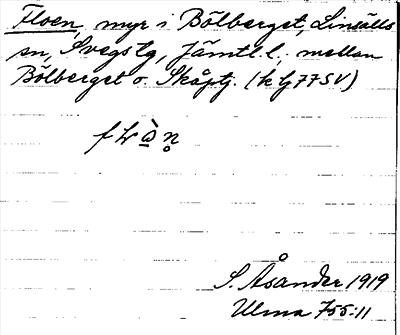 Floen, myr i Bölberget, Linsälls
sn, Svegs tg, Jämtl. l., mellan
Bölberget o. Skåptj. (k bj 77 SV)
S. Åsander 1919
Ulma 755:11